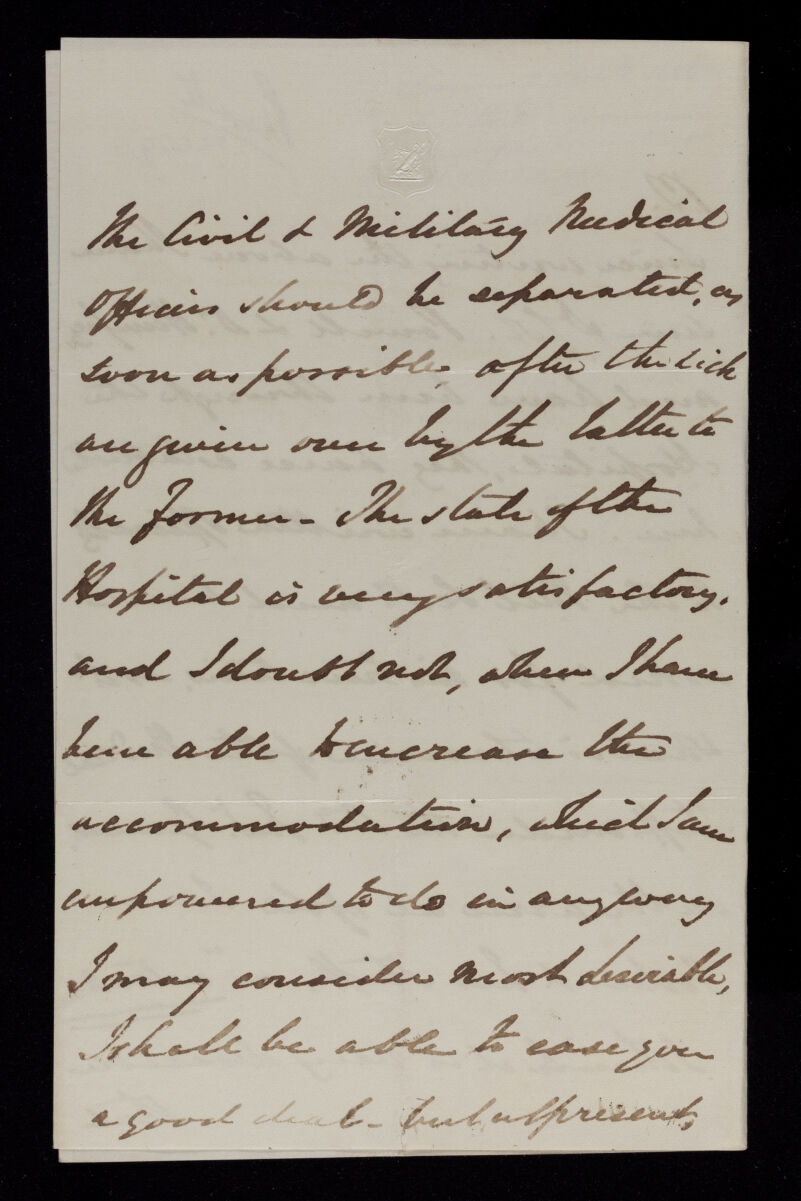 The Civil & Military Medical
Officers should be separated, as
soon as possible, after the sick
are given over by the latter to
the former – The state of the
Hospital is very satisfactory.
and I doubt not, when I have
been able to increase the
accommodation, which I am
empowered to do in any way
I may consider most desirable,
I shall be able to ease you
a good deal – but at present,